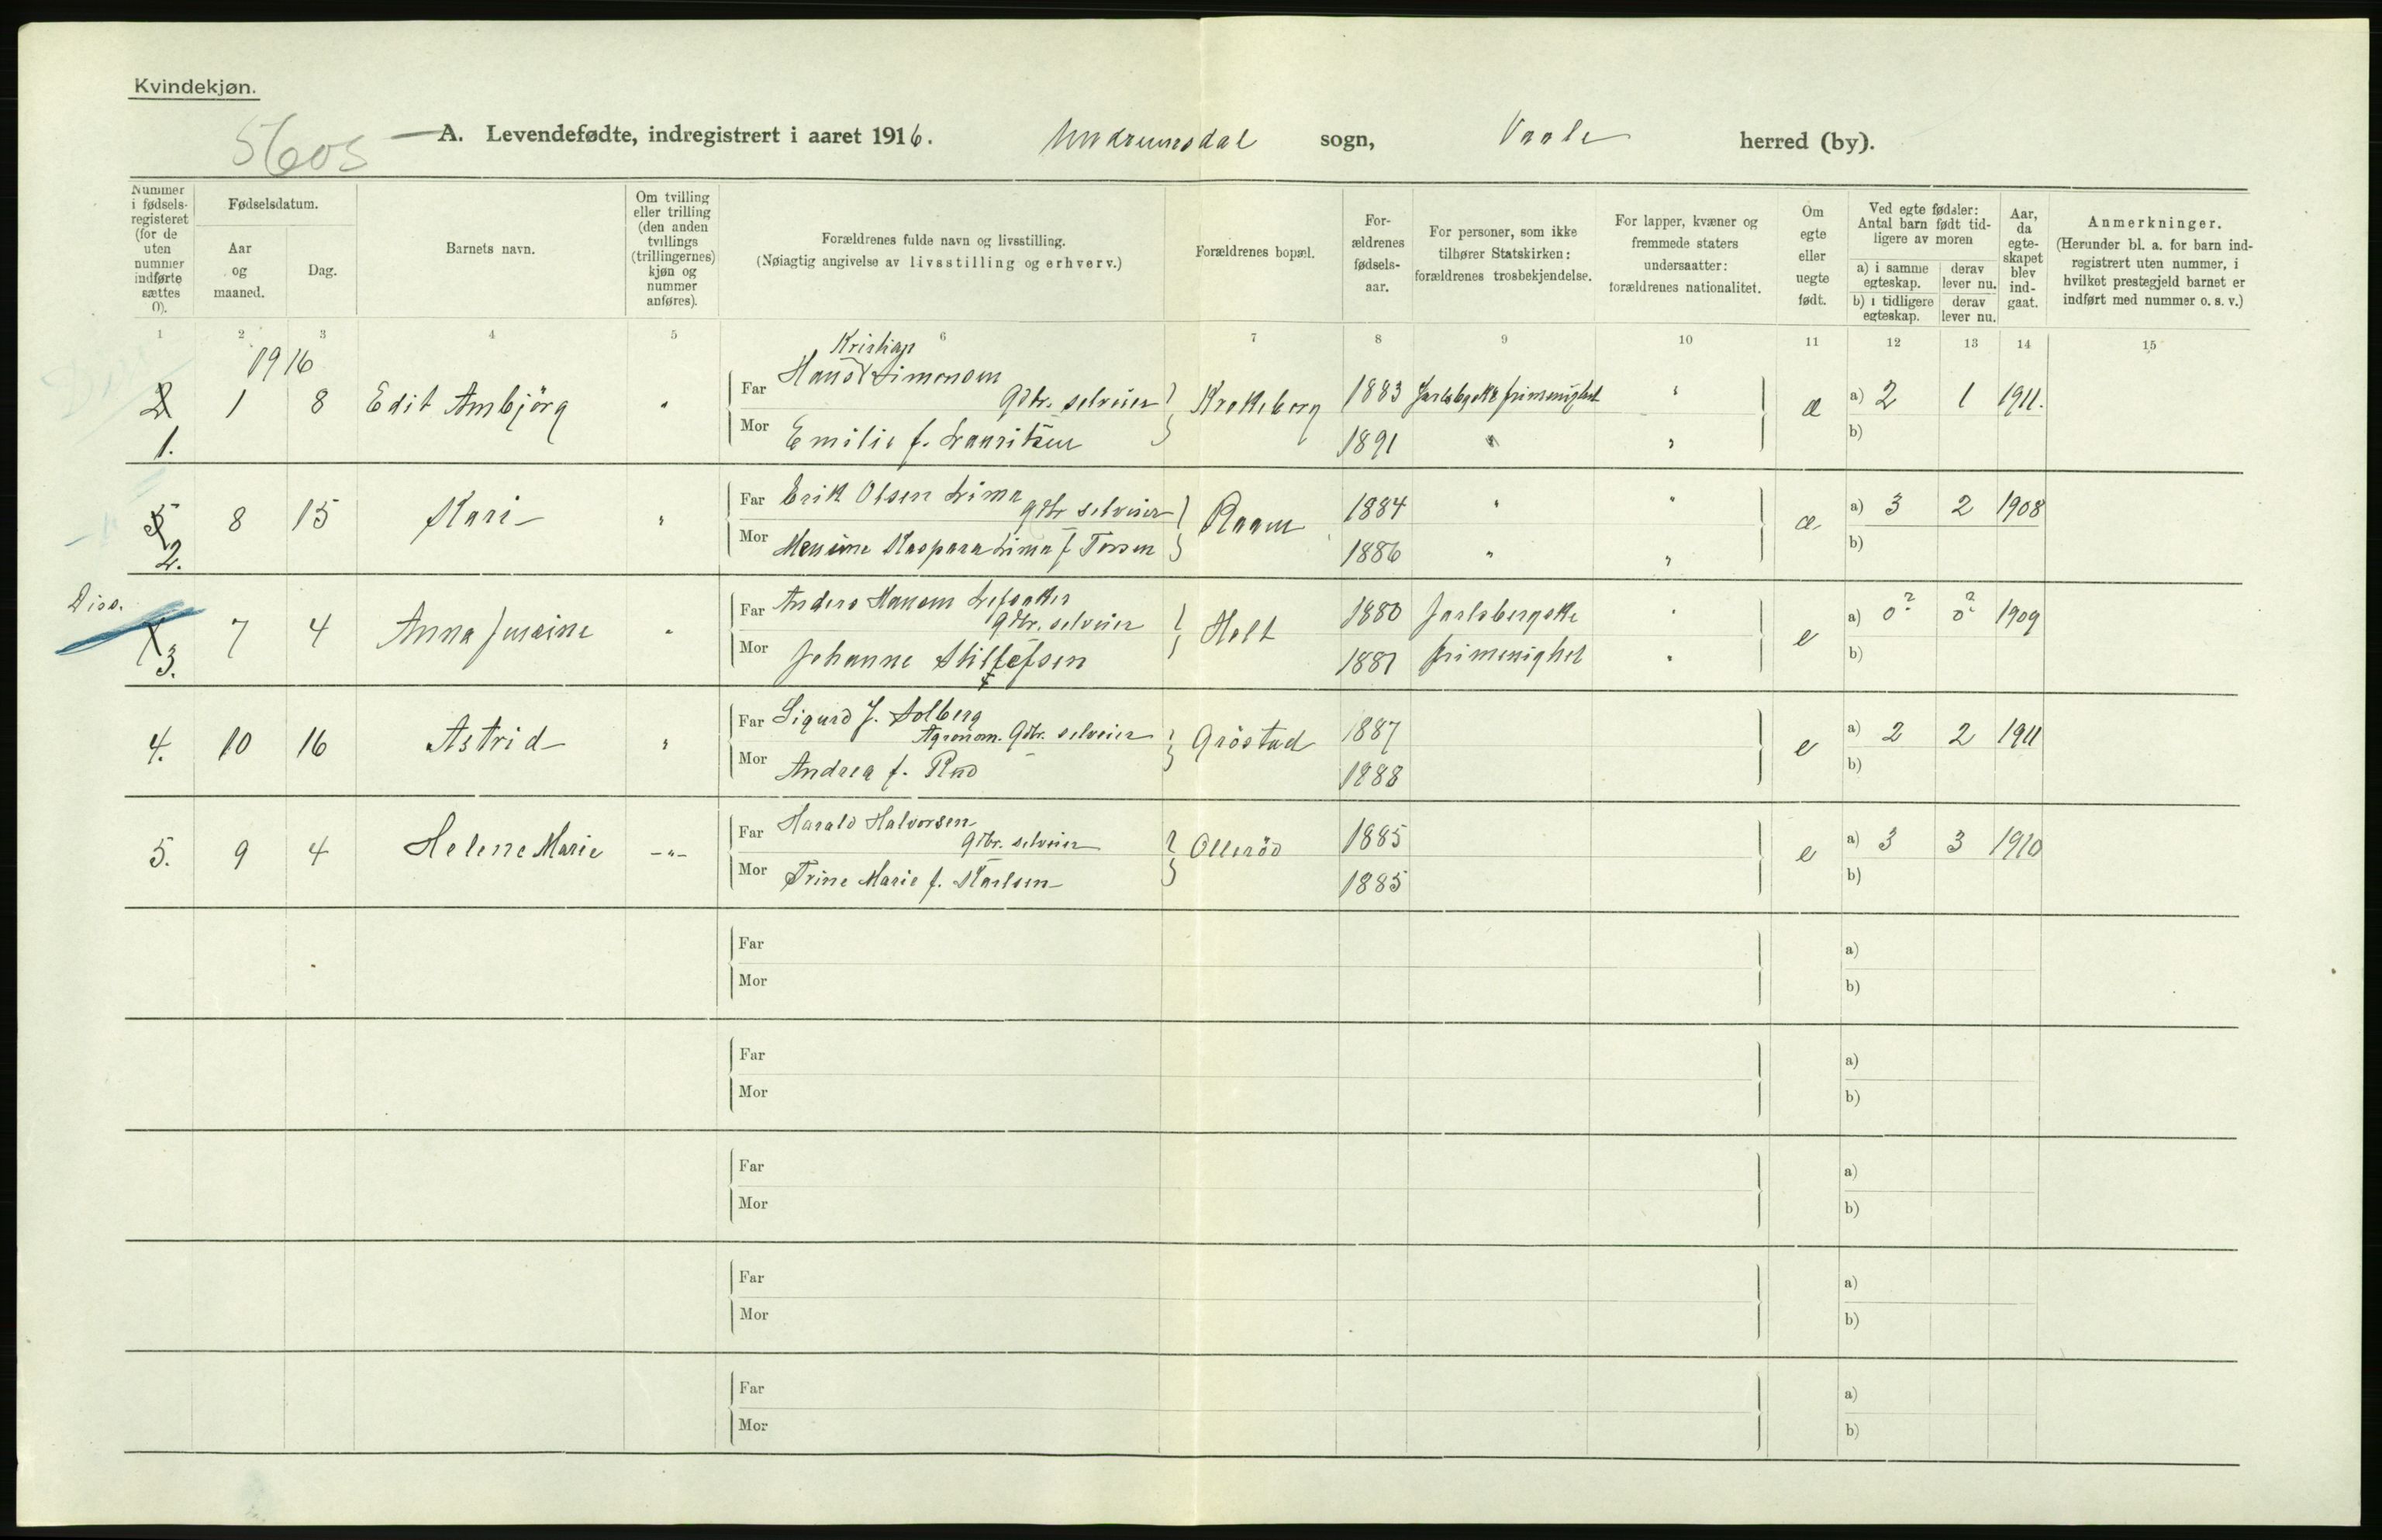 Kvindekjøn.
5605 — A. Levendefødte, indregistrert i aaret 1916. Undrumsdal sogn, Vaale herred (by).
Nummer i fødselsregisteret (for de uten nummer indførte sættes 0).
Fødselsdatum.
Aar og maaned.
Dag.
Barnets navn.
Om tvilling eller trilling (den anden tvillings (trillingernes) kjøn og nummer anføres).
Forældrenes fulde navn og livsstilling.
(Nøiagtig angivelse av livsstilling og erhverv.)
Forældrenes bopæl.
Forældrenes fødselsaar.
For personer, som ikke tilhører Statskirken: forældrenes trosbekjendelse.
For lapper, kvæner og fremmede staters undersaatter: forældrenes nationalitet.
Om egte eller uegte født.
Ved egte fødsler: Antal barn født tidligere av moren
a) i samme egteskap. derav lever nu.
b) i tidligere egteskap. derav lever nu.
Aar, da egteskapet blev indgaat.
Anmerkninger.
(Herunder bl. a. for barn indregistrert uten nummer, i hvilket prestegjeld barnet er indført med nummer o. s. v.)
1 2 3 4 5 6 7 8 9 10 11 12 13 14 15
1916
Kristian
2 1 8 Edit Ambjörg " Far Hans Simensen Gbr. selveier Krokeborg 1883 Jarlsbgske frimenighet " æ a) 2 1 1911.
1. Mor Emilie f. Lauritsen 1891 " " b)
5 8 15 Kari " Far Erik Olsen Lima Gbr selveier Raam 1884 " " æ a) 3 2 1908
2. Mor Kaspara Lima f 1886 " " b)
Diss.
7 4 Anna " Far Anders Hansen Gbr. selveier Holt 1880 Jarlsbergske " e a) 0? 0? 1909
3. Mor Johanne 1881 frimenighet " b)
4. 10 16 Astrid " Far Sigurd J. Solberg Agronom. Gbr. selveier Gröstad 1887 e a) 2 2 1911
Mor Andrea f. Rud 1888 b)
5. 9 4 Helene Marie –"– Far Harald Halvorsen Gbr. selveier Olleröd 1885 e a) 3 3 1910
Mor Trine Marie f. Karlsen 1885 b)
Far a)
Mor b)
Far a)
Mor b)
Far a)
Mor b)
Far a)
Mor b)
Far a)
Mor b)